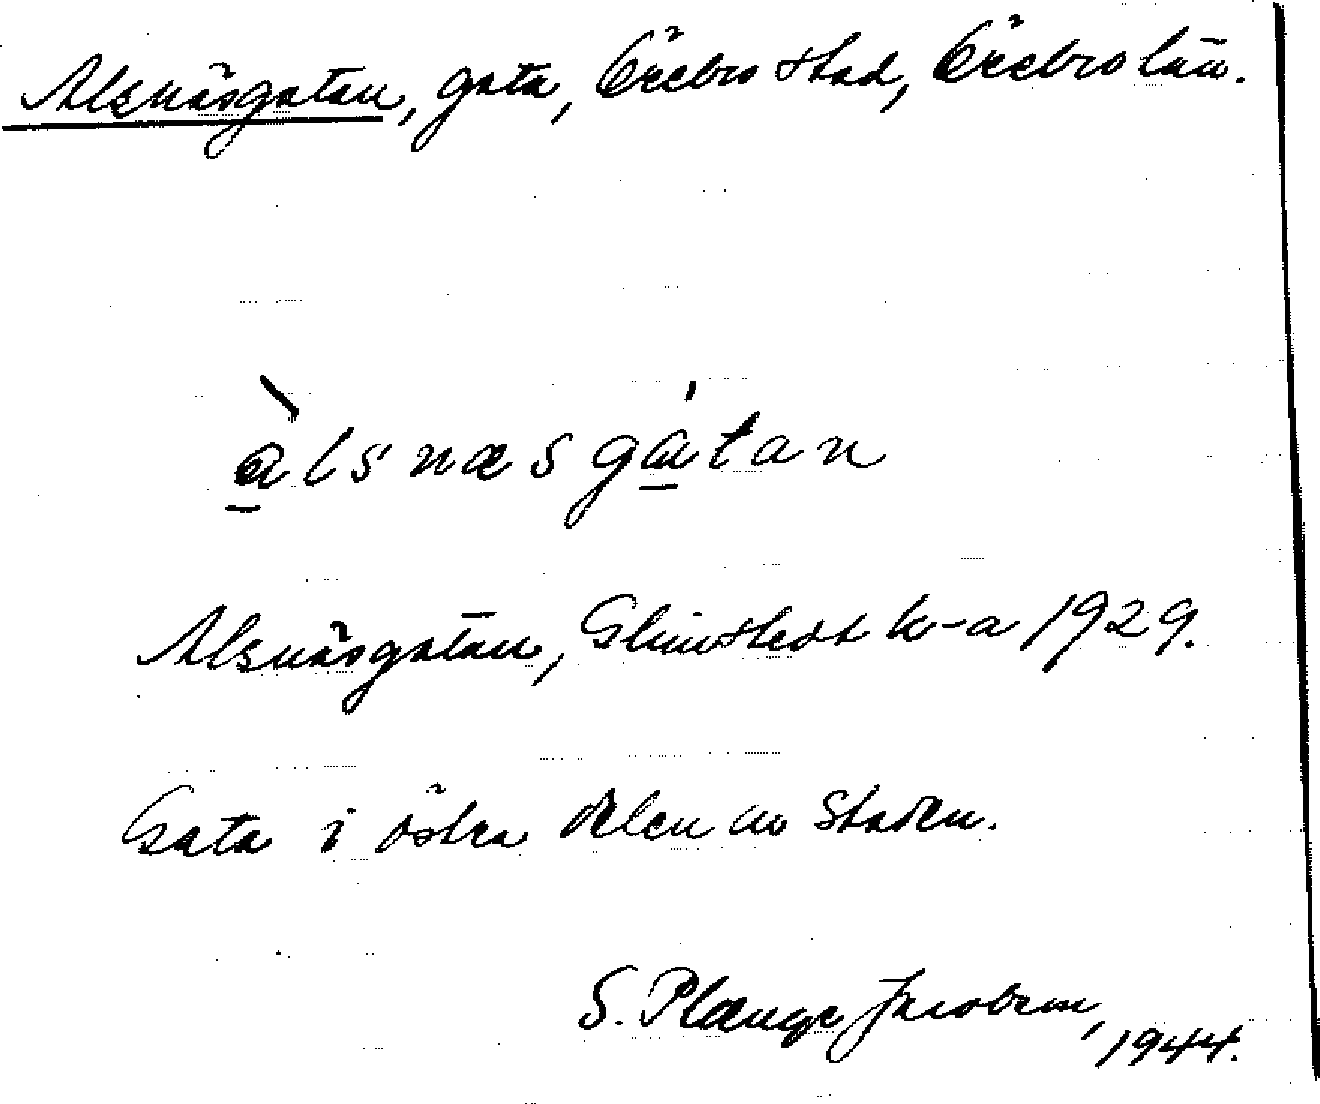 Alsnäsgatan, gata, Örebro stad, Örebro län.
àlsnæsgátan
Alsnäsgatan, Glimstedt k-a 1929.
Gata i östra delen av staden.
S. Plænge Jacobson, 1944.